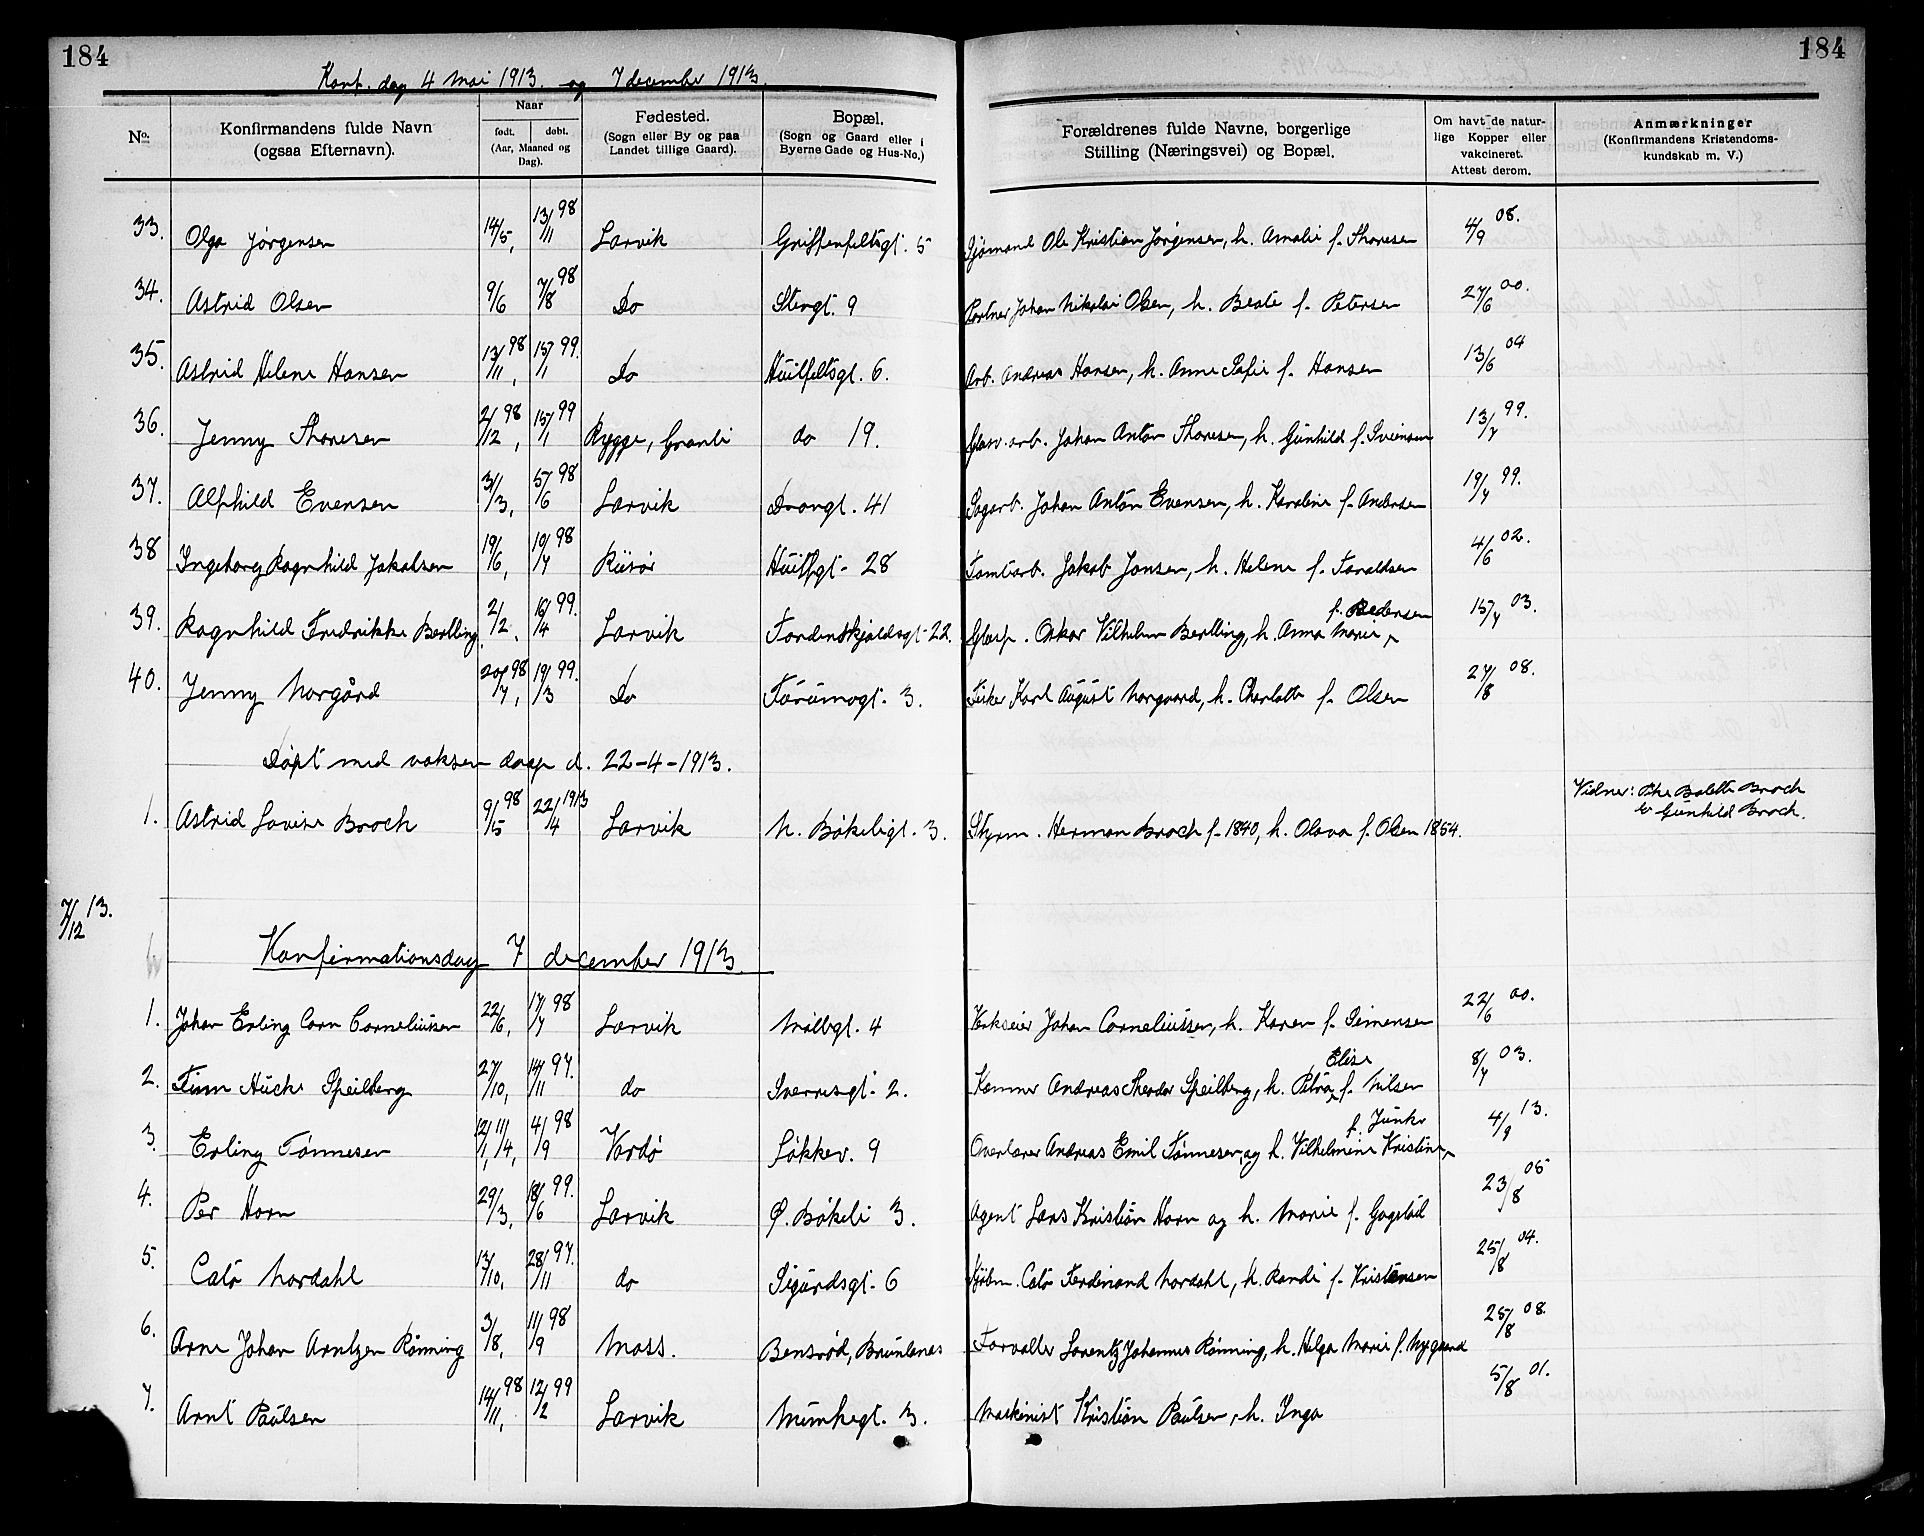 184
184
Konf. dag 4 Mai 1913. og 7 december 1913.
No. Konfirmandens fulde Navn (ogsaa Efternavn). Naar født. døbt. (Aar, Maaned og Dag). Fødested. (Sogn eller By og paa Landet tillige Gaard). Bopæl. (Sogn og Gaard eller i Byerne Gade og Hus-No.) Forældrenes fulde Navne, borgerlige Stilling (Næringsvei) og Bopæl. Om havt de naturlige Kopper eller vakcineret. Attest derom. Anmærkninger (Konfirmandens Kristendomskundskab m. V.)
33. Olga Jørgensen 14/5, 13/11 98 Larvik Griffenfeltsgt. 5 Sjømand Ole Kristian Jørgensen, h. Amalie f. Thoresen 4/9 08.
34. Astrid Olsen 9/6 7/8 98 Do Stengt. 9 Portner Johan Nikolai Olsen, h. Beate f. Petersen 27/6 00.
35. Astrid Helene Hansen 13/11 98, 15/1 99. Do Huitfeltsgt. 6. Arb. Andreas Hansen, h. Anne Sofie f. Hansen 13/6 04
36. Jenny Thoresen 2/12 98, 15/1 99 Rygge, Granli do 19. Glasv. arb. Johan Anton Thoresen, h. Gunhild f. Sveinsen 13/7 99.
37. Alfhild Evensen 31/3, 5/6 98 Larvik Drongt. 41 Sagarb. Johan Anton Evensen, h. Karoline f. Andersen 19/7 99.
38 Ingeborg Ragnhild Jakobsen 19/6, 10/7 98 Risør Huitfgt. 28 Tomtearb. Jakob Jansen, h. Helene f. Taraldsen 4/6 02.
39. Ragnhild Fredrikke Bertling 2/2, 16/4 99. Larvik Tordenskjoldsgt. 22. Glasp. Oskar Vilhelm Bertling, h. Anna Marie f. Pedersen 15/7 03.
40. Jenny Norgård 20/7 98, 19/3 99. Do Torumogt. 3. Fisker Karl August Norgaard, h. Charlotte f. Olsen 27/8 08.
Døpt med voksen daap d. 22-4-1913.
1. Astrid Lovise Broch 9/5 98 22/4 1913 Larvik N. Bøkeligt. 3. Styrm. Herman Broch f. 1840, h. Olava f. Olsen 1854. Vidner: Balette Broch
& Gunhild Broch.
7/12 13.
Konfirmationsdag 7 december 1913.
1. Johan Erling Corn Corneliussen 22/6, 17/7 98 Larvik Møllegt. 4 Verkseier Johan Corneliussen, h. Karen f. Simensen 22/6 00.
2. Finn Hucke Speilberg 27/10, 14/11 97. do Sverresgt. 2. Kemner Andreas Theodor Speilberg, h. Petra Elise f. Nilsen 8/7 03.
3. Erling Tønnesen 12/1, 11/4, 4/9 98 Vardø Løkkev. 9 Overlærer Andreas Emil Tønnesen, og h. Vilhelmine Kristine f. Junke 4/9 13.
4. Per Horn 29/3, 18/6 99. Larvik Ø. Bøkeli 3. Agent Lars Kristian Horn og h. Marie f. Gogstad 23/8 05
5. Cato Nordahl 13/10, 28/11 97. do Sigurdsgt. 6 Sjøbm. Cato Ferdinand Nordahl, h. Randi f. Kristensen 25/8 04.
6. Arne Johan Arntzen Rønning 3/8, 11/9 98 Moss. Bensrød, Brunlanes Forvalter Lorentz Johannes Rønning, h. Helga Marie f. Nygaard 25/8 08.
7. Arnt Paulsen 14/11, 98 12/2 99 Larvik Munkegt. 3. Maskinist Kristian Paulsen, h. Inga 5/8 01.